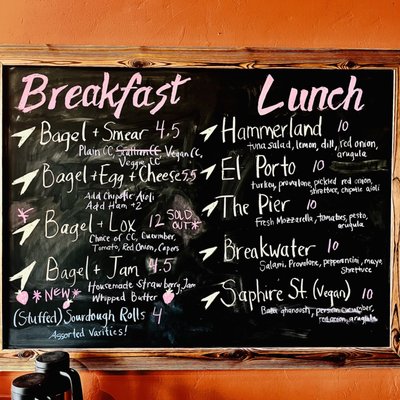 Breakfast
Bagel + Smear 4.5
Plain CC, Scallion CC, Vegan CC,
Veggie CC
Bagel + Egg + Cheese 5.5
Add Chipotle Aioli
Add Ham +2
*Bagel + Lox 12 SOLD OUT*
Choice of CC, Cucumber,
Tomato, Red Onion, Capers
Bagel + Jam 4.5
Housemade Strawberry Jam
Whipped Butter
*NEW*
(Stuffed) Sourdough Rolls 4
Assorted Varities!
Lunch
Hammerland 10
tuna salad, lemon, dill, red onion,
arugula
El Porto 10
turkey, provalone, pickled red onion,
shrettuce, chipotle aioli
The Pier 10
Fresh Mozzarella, tomatoes, pesto,
arugula
Breakwater 10
Salami, Provolone, pepperoncini, mayo
Shrettuce
Saphire St. (Vegan) 10
Baba ghanoush, persian cucumber,
red onion, arugula